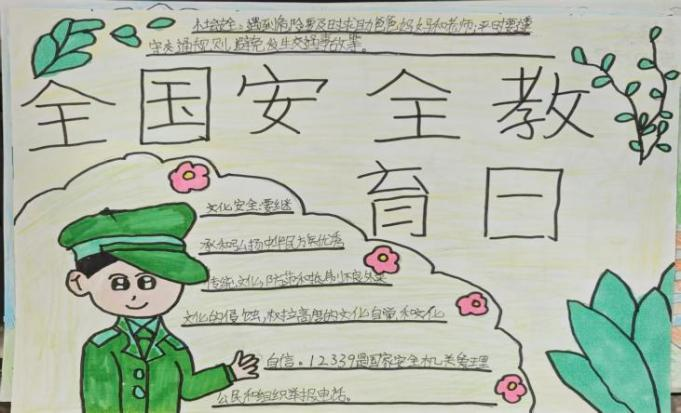 社会安全:遇到危险要及时求助爸爸妈妈和老师,平时要遵
守交通规则,避免发生交通事故等。
全国安全教
育日
文化安全:要继
承和弘扬中华民族优秀
传统文化,防范和抵制不良外来
文化的侵蚀,树立高度的文化自觉和文化
自信。12339是国家安全机关受理
公民和组织举报电话。